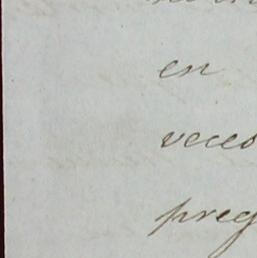 en
veces
preg